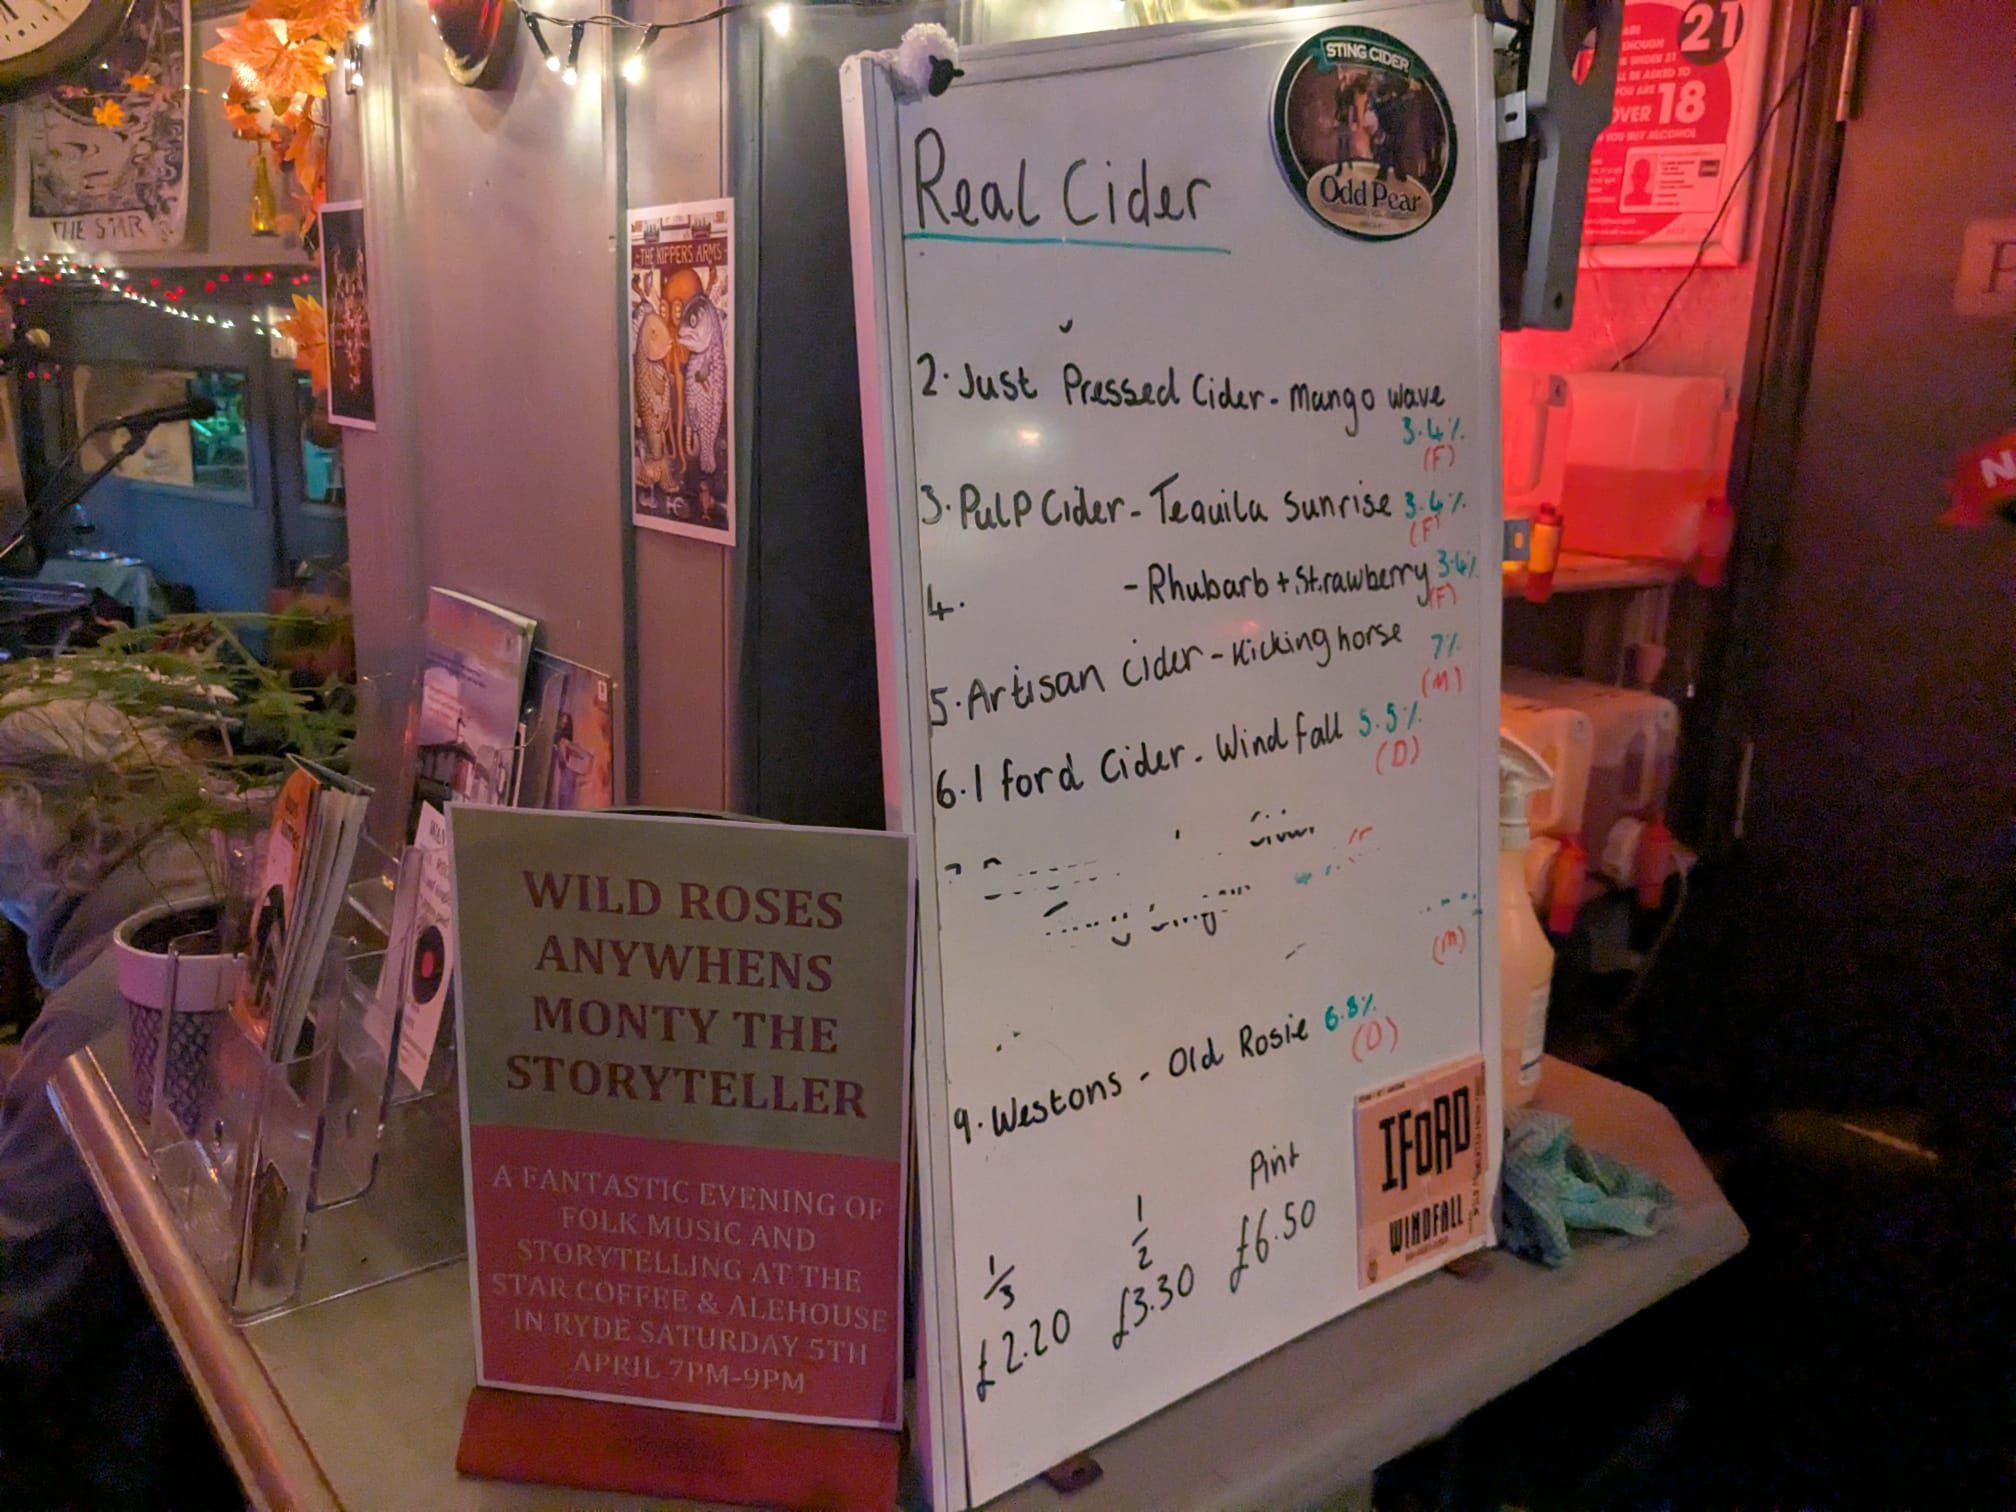 THE STAR
THE KIPPERS ARMS
STING CIDER
Odd Pear
21
OVER 18
YOU BUY ALCOHOL
Real Cider
2. Just Pressed Cider - Mango wave
3.4%
(F)
3. PulP Cider - Tequila Sunrise 3.4%
(F)
4. - Rhubarb + Strawberry 3.4%
(F)
5. Artisan cider - Kicking horse 7%
(M)
6. Iford Cider - Windfall 5.5%
(D)
(M)
9. Westons - Old Rosie 6.8%
(D)
1/3 1/2 Pint
£2.20 £3.30 £6.50
IFORD
WINDFALL
WILD ROSES
ANYWHENS
MONTY THE
STORYTELLER
A FANTASTIC EVENING OF
FOLK MUSIC AND
STORYTELLING AT THE
STAR COFFEE & ALEHOUSE
IN RYDE SATURDAY 5TH
APRIL 7PM-9PM